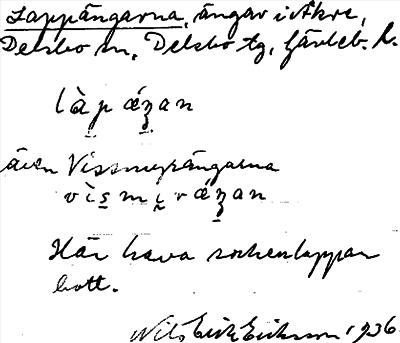 Lappängarna, ängar i Åkre,
Delsbo sn, Delsbo tg, Gävleb. l.
làpǽʒan
även Vissmyrängarna
vìsmɩrǽʒan
Här hava sockenlappar
bott.
Nils Erik Eriksson 1936.